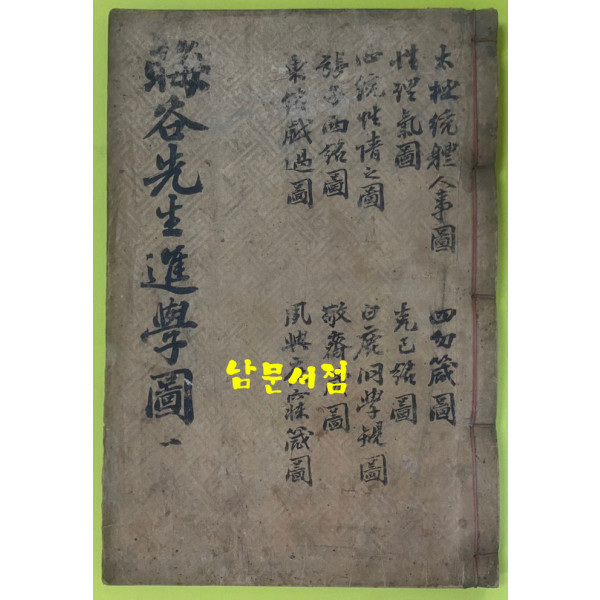 太極統體人事圖
性理氣圖
心統性情之圖
張子西銘圖
東銘戲過圖
四勿箴圖
克己銘圖
白鹿洞學規圖
敬齋 圖
夙興夜寐箴圖
晦谷先生進學圖 一
남문서점